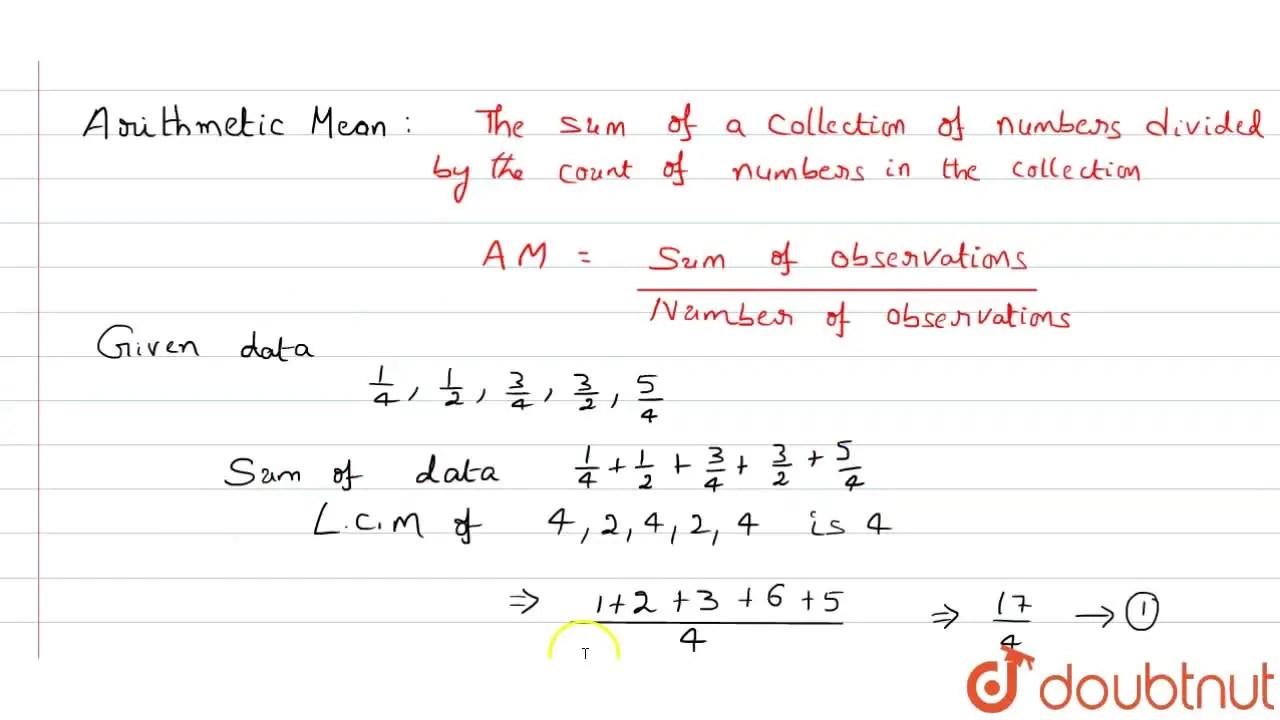 Arithmetic Mean : The sum of a collection of numbers divided
by the count of numbers in the collection
AM = Sum of observations
Number of observations
Given data
1/4, 1/2, 3/4, 3/2, 5/4
Sum of data 1/4 + 1/2 + 3/4 + 3/2 + 5/4
L.C.M of 4, 2, 4, 2, 4 is 4
⇒ 1+2+3+6+5/4 ⇒ 17/4 → ①
doubtnut